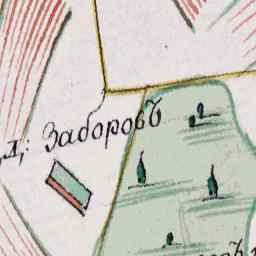 д: Заборовъ